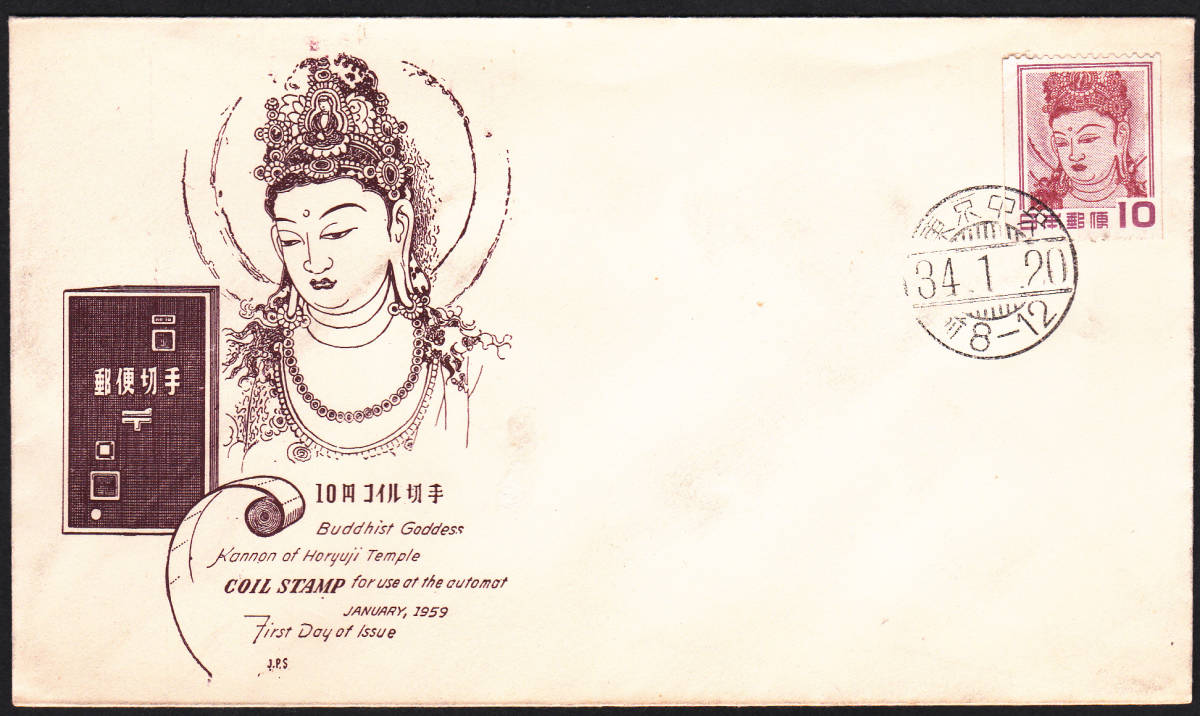 郵便切手
10円コイル切手
Buddhist Goddess
Kannon of Horyuji Temple
COIL STAMP for use at the automat
JANUARY, 1959
First Day of Issue
J.P.S
日本郵便 10
東京中央
34.1.20
前8-12